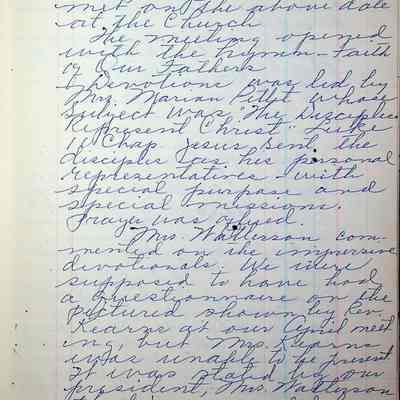 met on the above date
at the Church
The meeting opened
with the hymn - Faith
of Our Fathers
Devotions was led by
Mrs. Marian Pettit whose
subject was "The Disciples
Represent Christ" Luke
10 Chap. Jesus sent the
disciples as his personal
representatives - with
special purpose and
special missions.
Prayer was offered.
Mrs. Watterson com-
mented on the impressive
devotionals. We were
supposed to have had
a questionnaire on the
pictured shown by Rev.
Kearns at our April meet
ing, but Mrs. Kearns
was unable to be present
It was stated by our
president, Mrs. Watterson